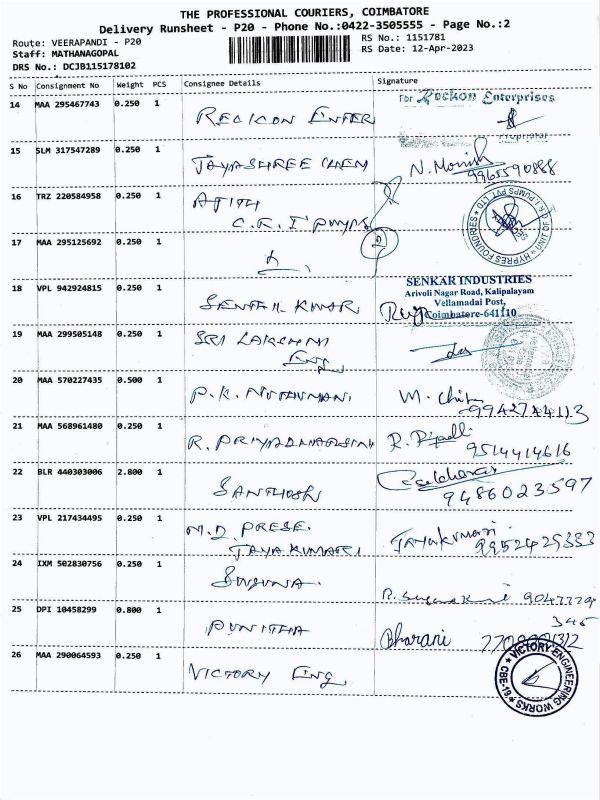 THE PROFESSIONAL COURIERS, COIMBATORE
Delivery Runsheet - P20 - Phone No.:0422-3505555 - Page No.:2
Route: VEERAPANDI - P20
Staff: MATHANAGOPAL
DRS No.: DCJB115178102
RS No.: 1151781
RS Date: 12-Apr-2023
S No Consignment No Weight PCS Consignee Details Signature
14 MAA 295467743 0.250 1 RECICON ENTER For Rockon Enterprises
Proprietor
15 SLM 317547289 0.250 1 JAYASHREE CHEM N. Monish
9965590888
16 TRZ 220584958 0.250 1 AJITH
C.R.I PUMPS
17 MAA 295125692 0.250 1
18 VPL 942924815 0.250 1 SENTHIL KUMAR SENKAR INDUSTRIES
Arivoli Nagar Road, Kalipalayam
Vellamadai Post,
Coimbatore-641110
19 MAA 299505148 0.250 1 SRI LAKSHMI
Eng
20 MAA 570227435 0.500 1 P.K. M. Chitra
9942744113
21 MAA 568961480 0.250 1 R. PRIYADHARSINI R.
9514414616
22 BLR 440303006 2.800 1 SANTHOSH
9486023597
23 VPL 217434495 0.250 1 M.D PRESE.
JAYAKUMARI Jayakumari
9952429333
24 IXM 502830756 0.250 1 SUGUNA. 9047779
345
25 DPI 10458299 0.800 1 PUNITHA Bharani
26 MAA 290064593 0.250 1 VICTORY Eng
VICTORY ENGINEERING WORKS
CBE-19